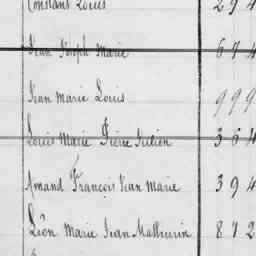 Constant Louis 294
Jean Joseph Marie 674
Jean Marie Louis 999
Louis Marie Pierre Julien 364
Amand François Jean Marie 394
Léon Marie Jean Mathurin 872